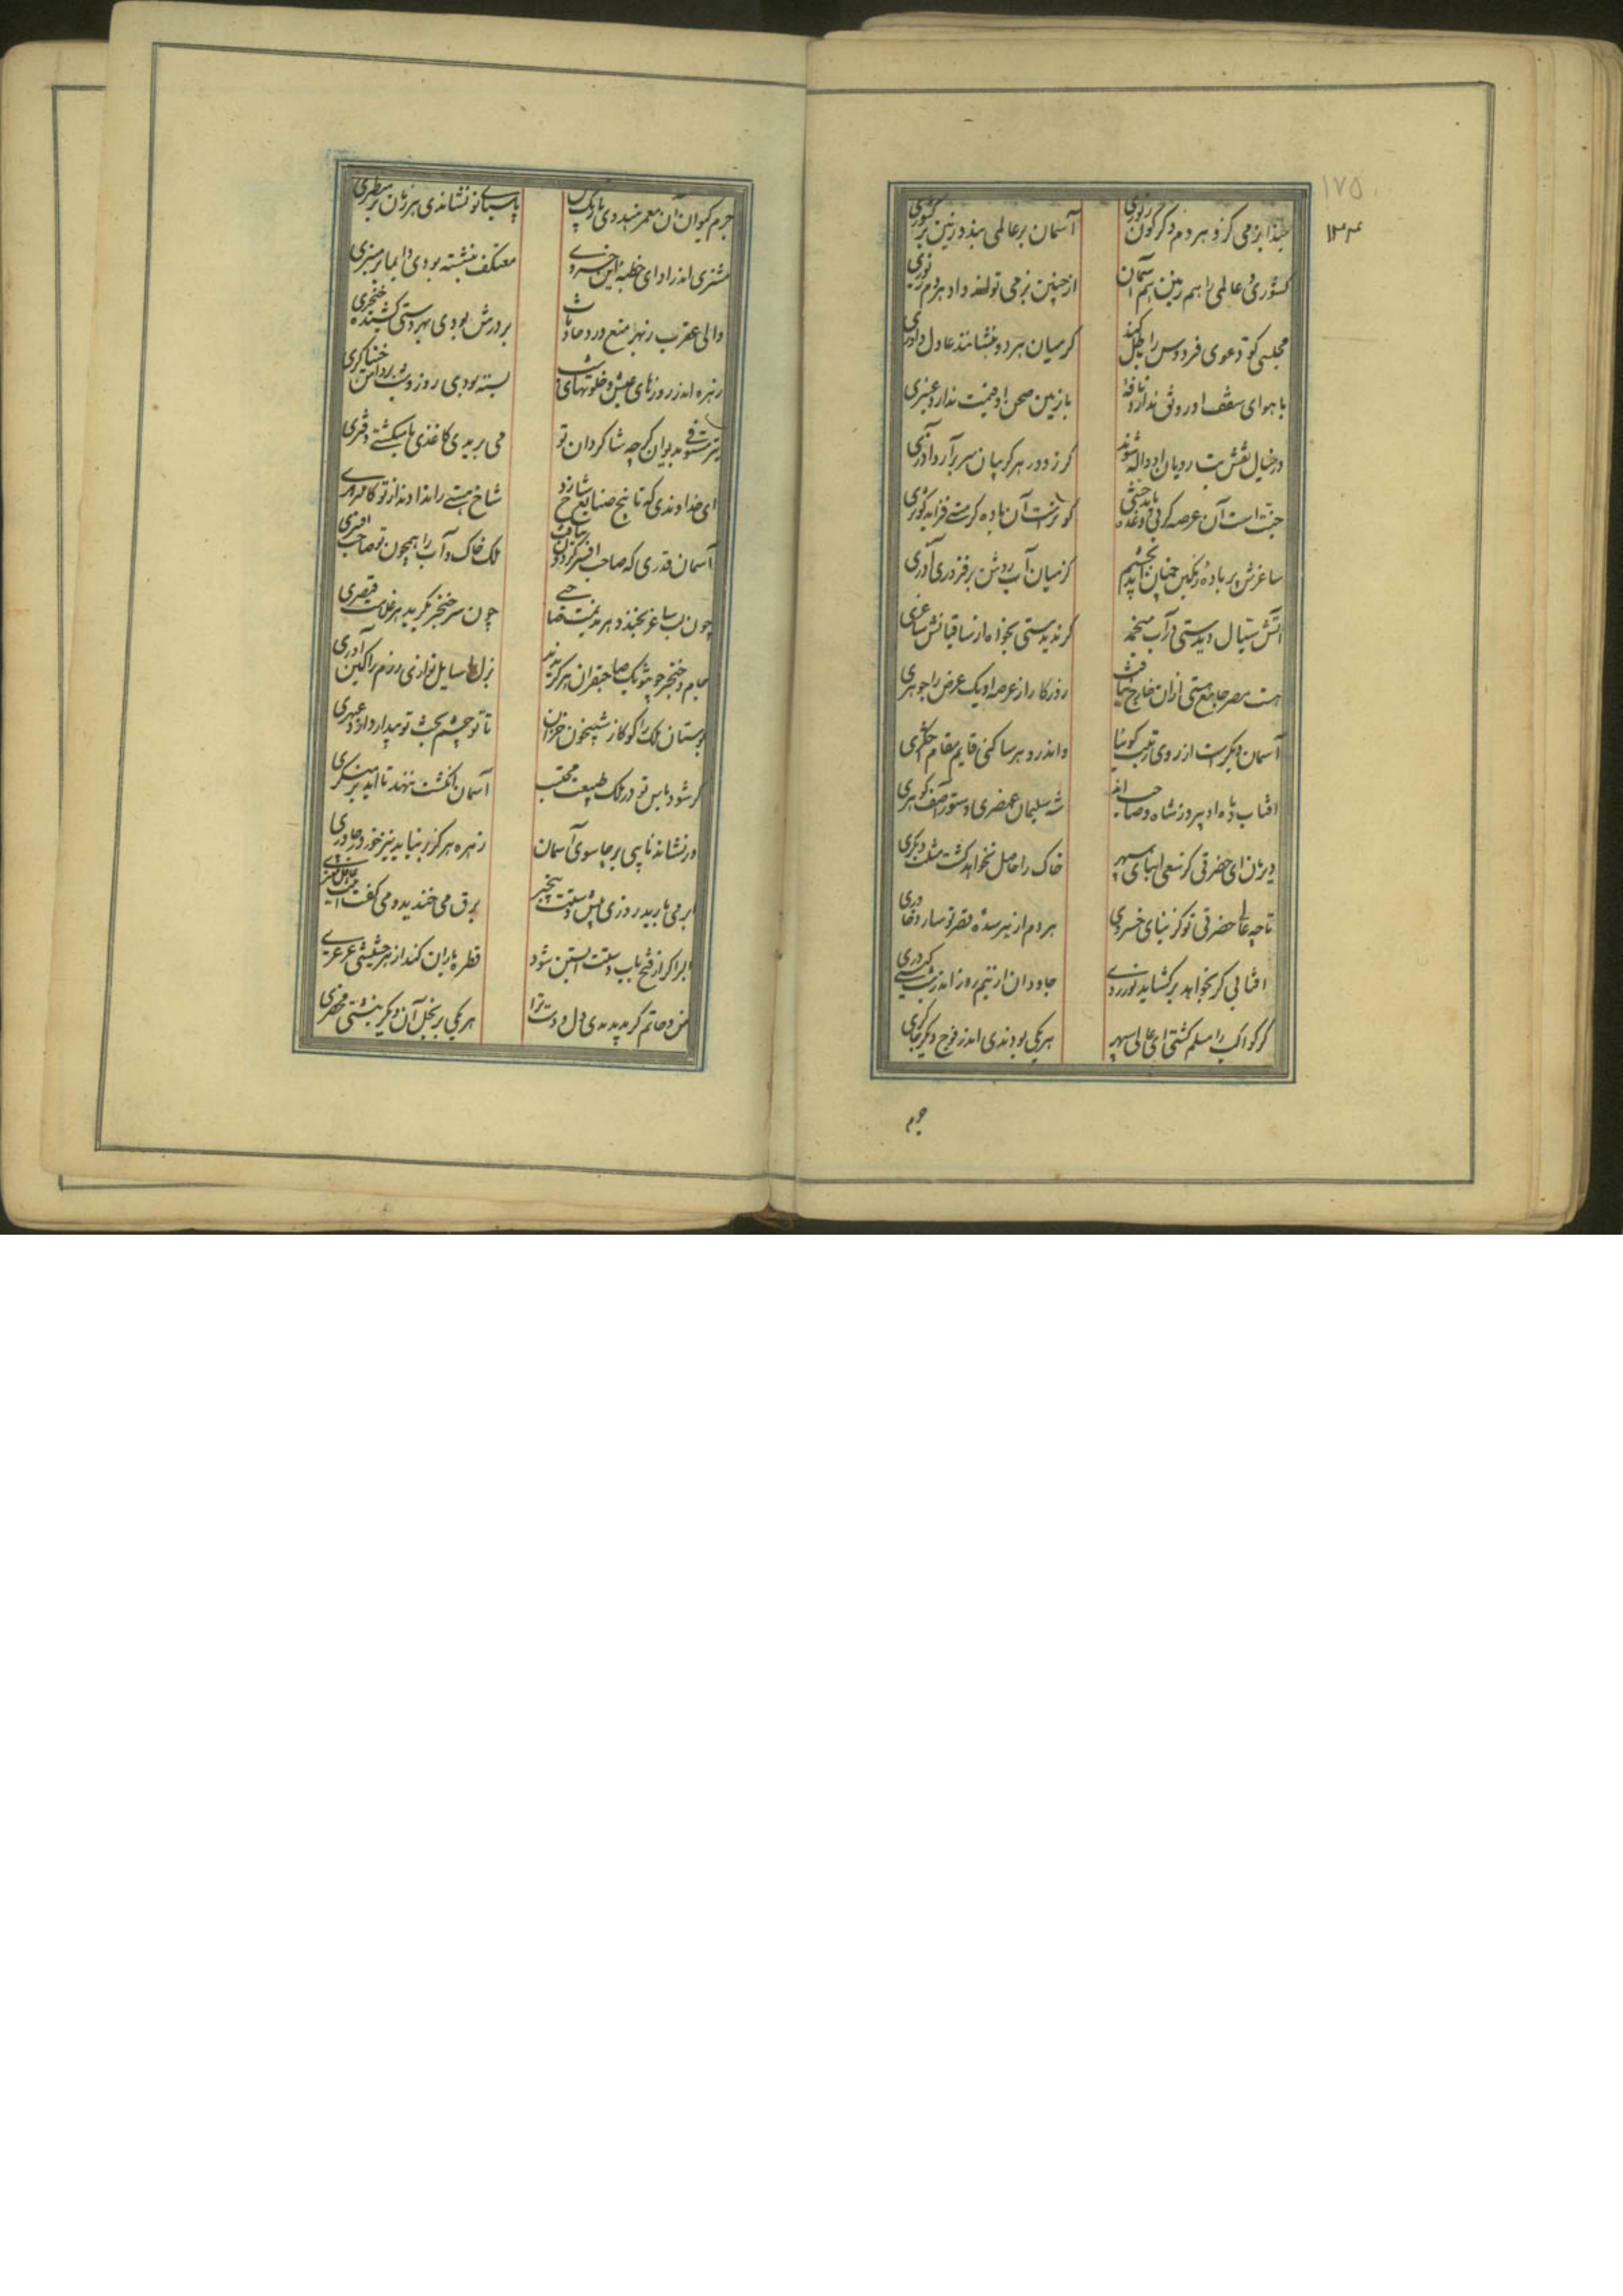 ۱۷۵
۱۳۴
حبذا بزمی کزو هر دم دگرگون زیوری
آسمان بر عالمی بندد زمین بر کشوری
کشوری و عالمی را هم زمین هم آسمان
از چنین بزمی تواند داد هر دم زیوری
مجلسی کو دعوی فردوس را باطل کند
گر میان هر دو بنشانند عادل داوری
با هوای سقف او رونق ندارد نافه
با زمین صحن او قیمت ندارد عنبری
در خیال نقش بت رویان او واله شوند
گر ز دور هر گریبان سر برآرد آزری
جنت است آن عرصه گر بی وعده یابد جنتی
کوثرست آن باده گر مستی فزاید کوثری
ساغرش پر باده رنگین چنان آید بچشم
کز میان آب روشن برفروزی آذری
آتش سیال دیدستی در آب منجمد
گر ندیدستی بخواه از ساقیانش ساغری
هست مصر جامع هستی از آن خارج نیافت
روزگار از عرصه او یک عرض را جوهری
آسمان دیگرست از روی رتبت گوئیا
واندرو هر ساکنی قایم مقام اختری
آفتاب و ماه او پیروز شاه و صاحب اند
شه سلیمان عنصری دستور آصف گوهری
دیر مان ای حضرتی کز سعی بنای سپهر
خاک را حاصل نخواهد گشت مثلت دیگری
تا چه عالی حضرتی تو کز بنای خسروی
هر دم از سده قصر تو سازد خاوری
آفتابی گر بخواهد برگشاید نور روی
جاودان از نیم روز اندر شبستانش دری
گر کواکب را مسلم گشتی ای عالی سپهر
هر یکی بودندی اندر فوج دیگر چاکری
جرم
جرم کیوان آن معمر هندوی باریک بین
پاسبانی تو نشاندی هر زمان بر منظری
مشتری اندر ادای خطبه این خسروی
معتکف بنشسته بودی دایما بر منبری
والی عقرب ز بهر منع و رد حادثات
بر درش بودی بهر دستی کشیده خنجری
زهره اندر روزهای عیش و خلوتهای شب
بسته بودی روز و شب بر دامن خنیاگری
تیر مستوفی بدیوان گر چه شاگردان تو
می بریدی کاغذی یا می‌شکستی دفتری
ای خداوندی که تا بیخ صنایع شاخ زد
شاخ هستی را ندادند از تو کاملتر بری
آسمان قدری که صاحب افسر گردون نیافت
ملک خاک و آب را همچون تو صاحب افسری
چون لب ساغر بخندد هر ندیمت حاتمی
چون سر خنجر بگرید هر غلامت قیصری
جام و خنجر چون تو یک صاحبقران هرگز ندید
بزم را سایل نوازی رزم را کین آوری
بوستان ملک را گو کاز شبیخون خزان
تا تو چشم بخت تو بیدار دارد عبهری
گر شود باس تو در ملک طبیعت محتسب
آسمان انگشت ننهد تا ابد بر منکری
ور نشاند ناپی بر جا سوی آسمان
زهره هرگز بر نیاید نیز جز در چادری
ابر می بارید روزی پیش دستت بیخبر
برق می خندید و می گفت اینت عاقل مهتری
ابر اگر از فتح باب دستت آبستن شود
قطره باران کند از هر حشیشی عرعری
معن و حاتم گر بدیدندی دل و دست ترا
هر یکی بر بخل آن دیگر نبشتی محضری